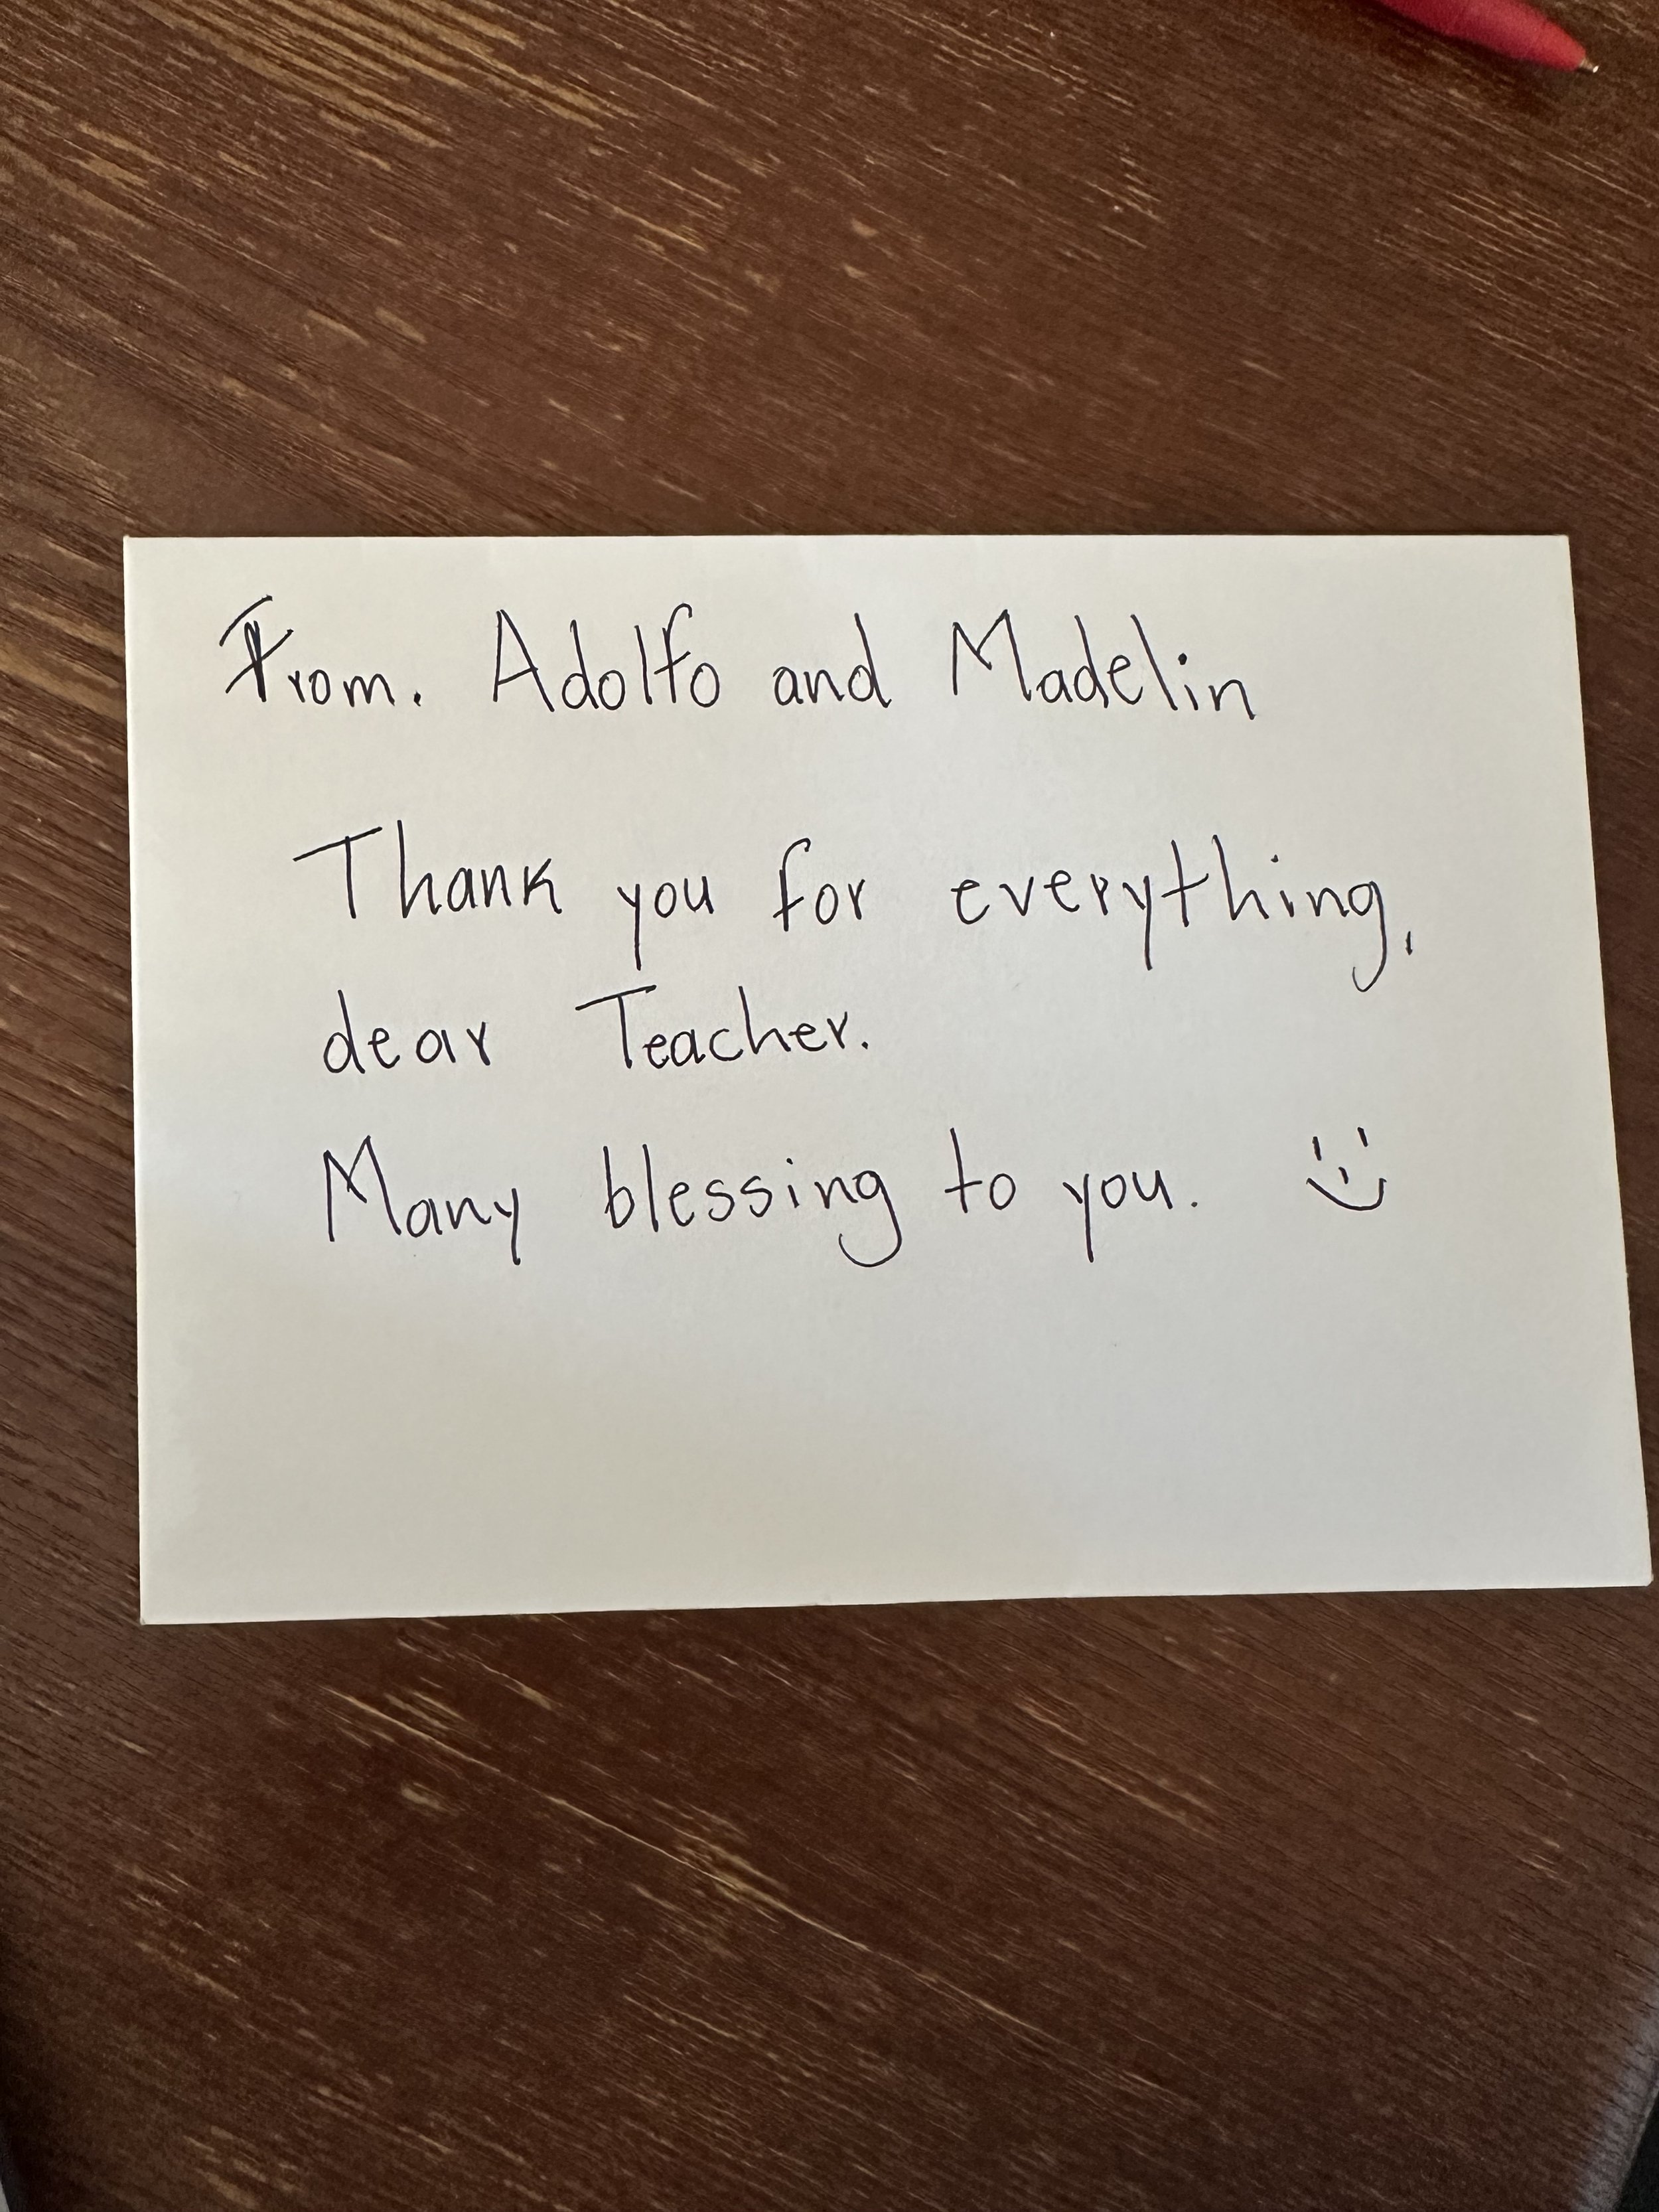 From. Adolfo and Madelin
Thank you for everything,
dear Teacher.
Many blessing to you.